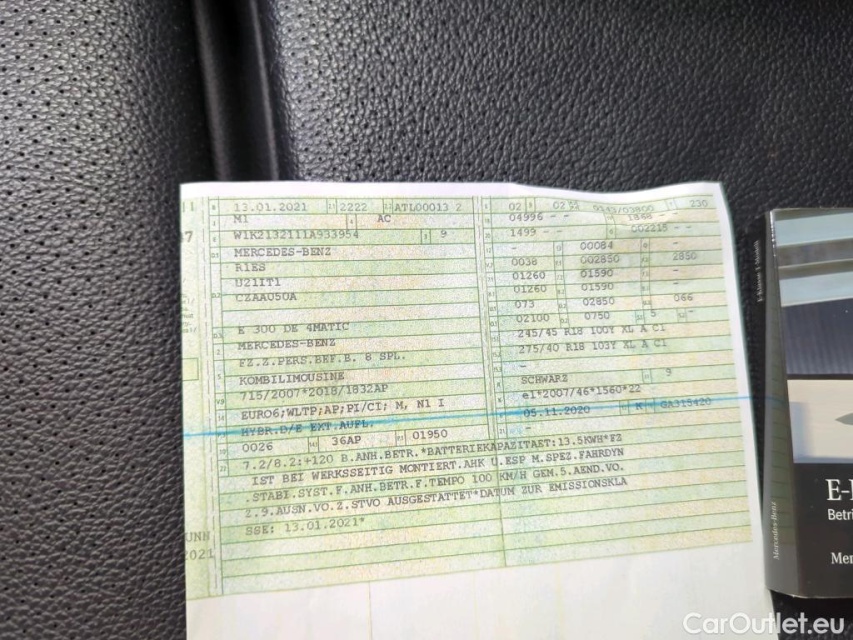 B 13.01.2021 2.1 2222 2.2 ATL00013 2
J M1 4 AC
E W1K2132111A933954 3 9
D.1 MERCEDES-BENZ
D.2 R1ES
U21IT1
CZAA050A
D.3 E 300 DE 4MATIC
2 MERCEDES-BENZ
5 FZ.Z.PERS.BEF.B. 8 SPL.
KOMBILIMOUSINE
V.9 715/2007*2018/1832AP
14 EURO6;WLTP;AP;PI/CI; M, N1 I
HYBR.D/E EXT.AUFL.
10 0026 14.1 36AP P.1 01950
22 7.2/8.2:+120 B.ANH.BETR.*BATTERIEKAPAZITAET:13.5KWH*FZ
IST BEI WERKSSEITIG MONTIERT.AHK U.ESP M.SPEZ.FAHRDYN
.STABI.SYST.F.ANH.BETR.F.TEMPO 100 KM/H GEM.5.AEND.VO.
Z.9.AUSN.VO.Z.STVO AUSGESTATTET*DATUM ZUR EMISSIONSKLA
SSE: 13.01.2021*
02 0252 0143/03800 230
04996 - - 1848 - -
1499 - - 002215 - -
- 00084 -
0038 002850 2850
01260 01590 - -
01260 01590 - -
073 02850 066
02100 0750 5 -
245/45 R18 100Y XL A C1
275/40 R18 103Y XL A C1
-
SCHWARZ 9
e1*2007/46*1560*22
05.11.2020 K GA315420
-
UNN
2021
E-Klasse T-Modell
Mercedes-Benz
E-
Betri
Mer
CarOutlet.eu